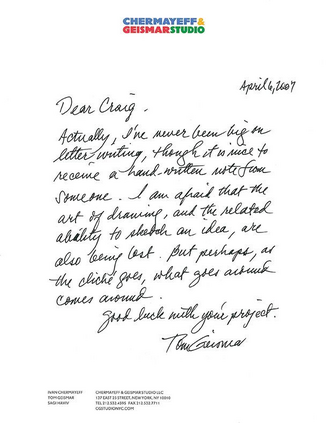 CHERMAYEFF&
GEISMARSTUDIO
April 6, 2007
Dear Craig.
Actually, I've never been big on
letter writing, though it is nice to
receive a hand written note from
someone. I am afraid that the
art of drawing, and the related
ability to sketch an idea, are
also being lost. But perhaps, as
the cliché goes, what goes around
comes around.
Good luck with your project.
Tom Geismar
IVAN CHERMAYEFF
TOM GEISMAR
SAGI HAVIV
CHERMAYEFF & GEISMAR STUDIO LLC
137 EAST 25 STREET, NEW YORK, NY 10010
TEL 212.532.4595 FAX 212.532.7711
CGSTUDIONYC.COM